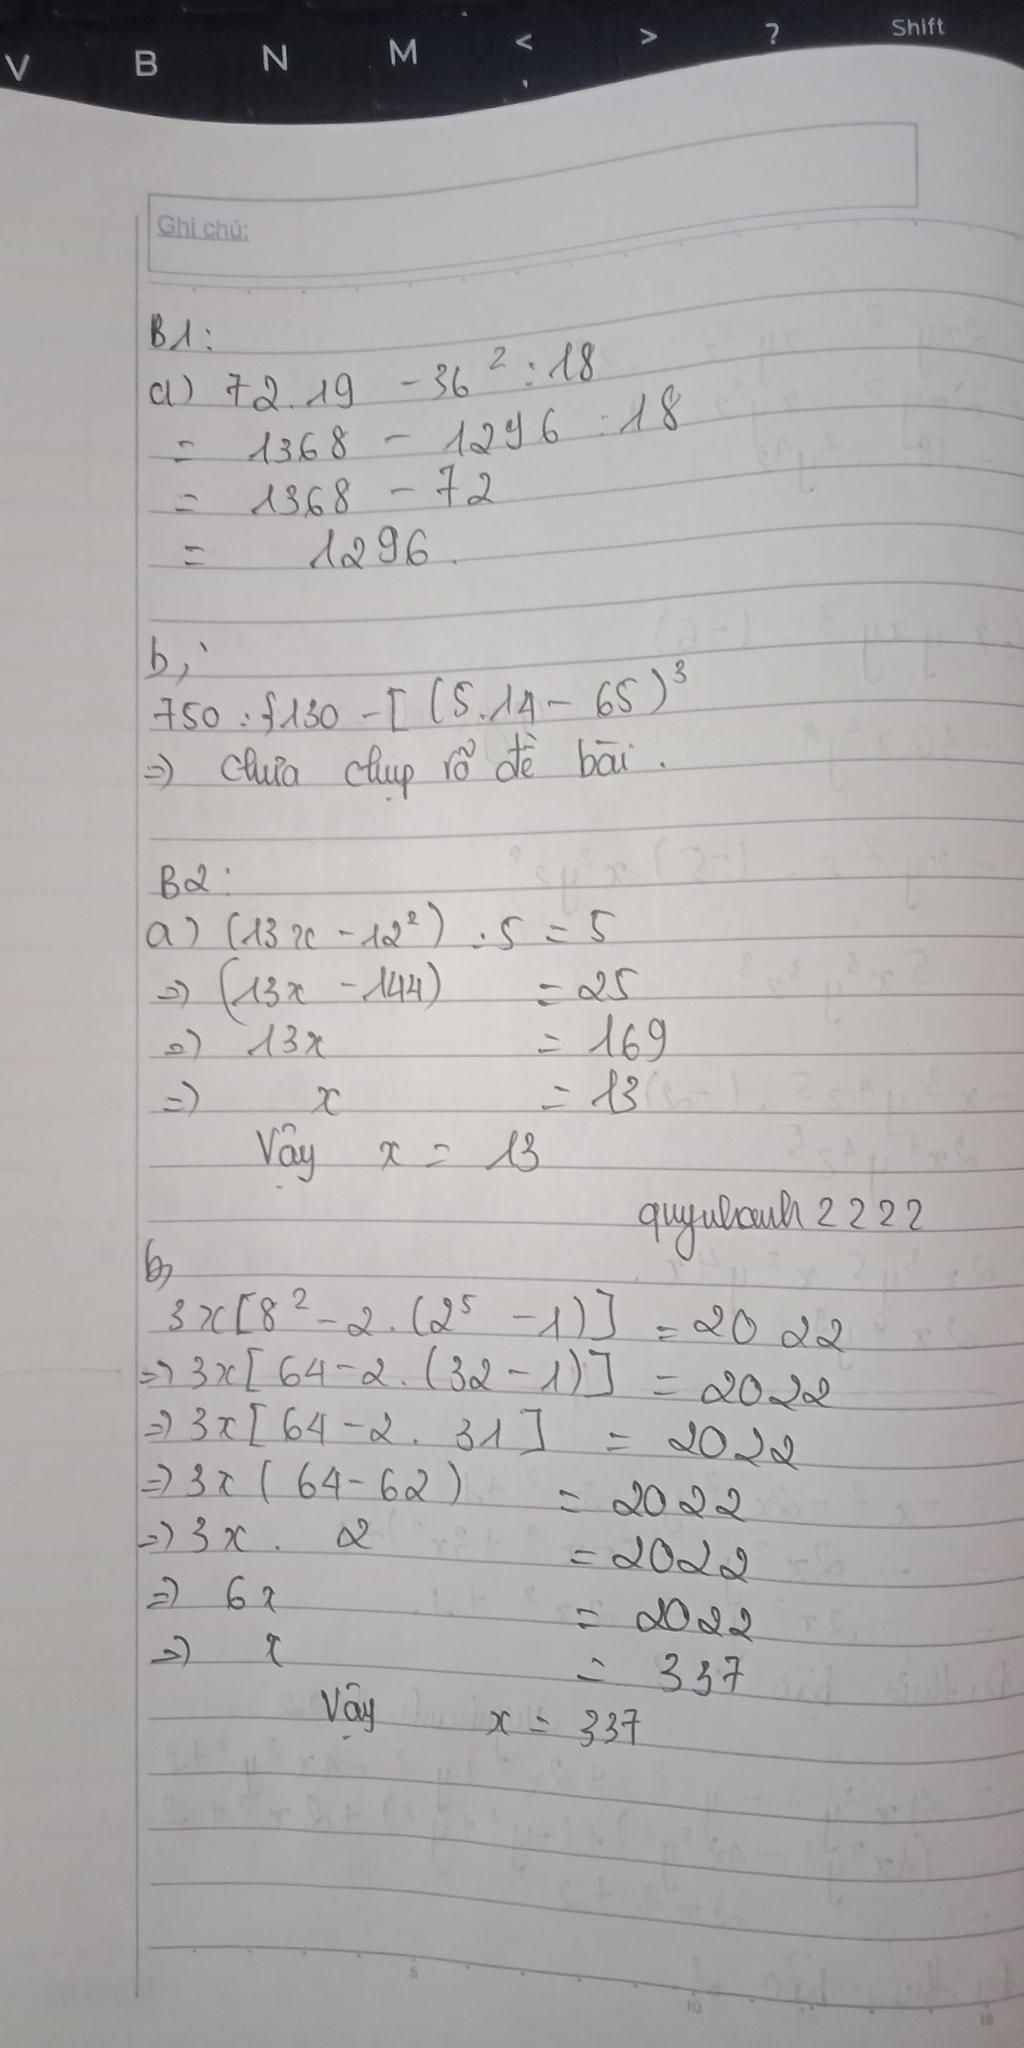 V B N M < > ? Shift
Ghi chú:
B1:
a) 72.19 - 36² : 18
= 1368 - 1296 : 18
= 1368 - 72
= 1296.
b,
750 : {130 - [(5.14 - 65)³
=> chưa chụp rõ đề bài.
B2:
a) (13x - 12²) : 5 = 5
=> (13x - 144) = 25
=> 13x = 169
=> x = 13
Vậy x = 13
quynhanh2222
b,
3x[8² - 2.(2⁵ - 1)] = 2022
=> 3x[64 - 2.(32 - 1)] = 2022
=> 3x[64 - 2. 31] = 2022
=> 3x(64 - 62) = 2022
=> 3x. 2 = 2022
=> 6x = 2022
=> x = 337
Vậy x = 337
5 10 15